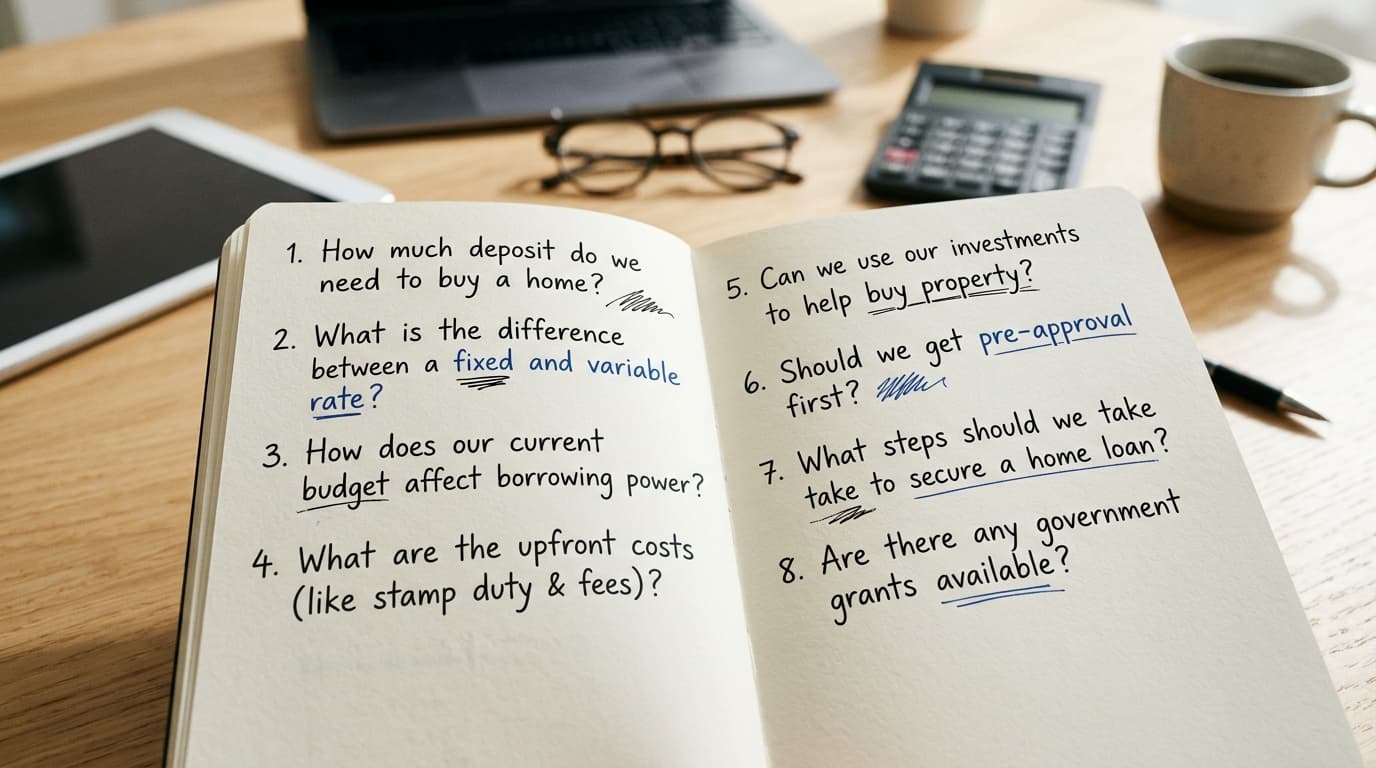 1. How much deposit do we
need to buy a home?
2. What is the difference
between a fixed and variable
rate?
3. How does our current
budget affect borrowing power?
4. What are the upfront costs
(like stamp duty & fees)?
5. Can we use our investments
to help buy property?
6. Should we get pre-approval
first?
7. What steps should we take
take to secure a home loan?
8. Are there any government
grants available?